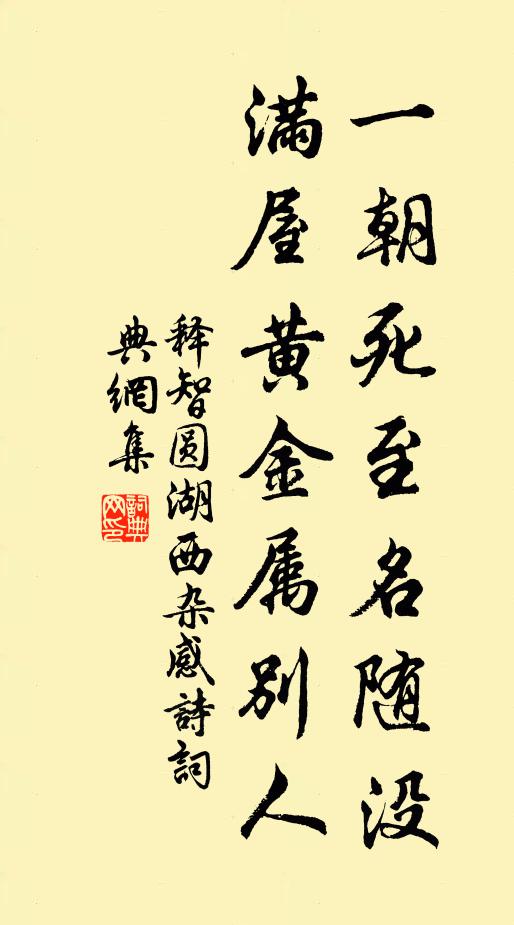 一朝死至名随没
满屋黄金属别人
释智圆湖西杂感詩詞
典網集
詞典
网印